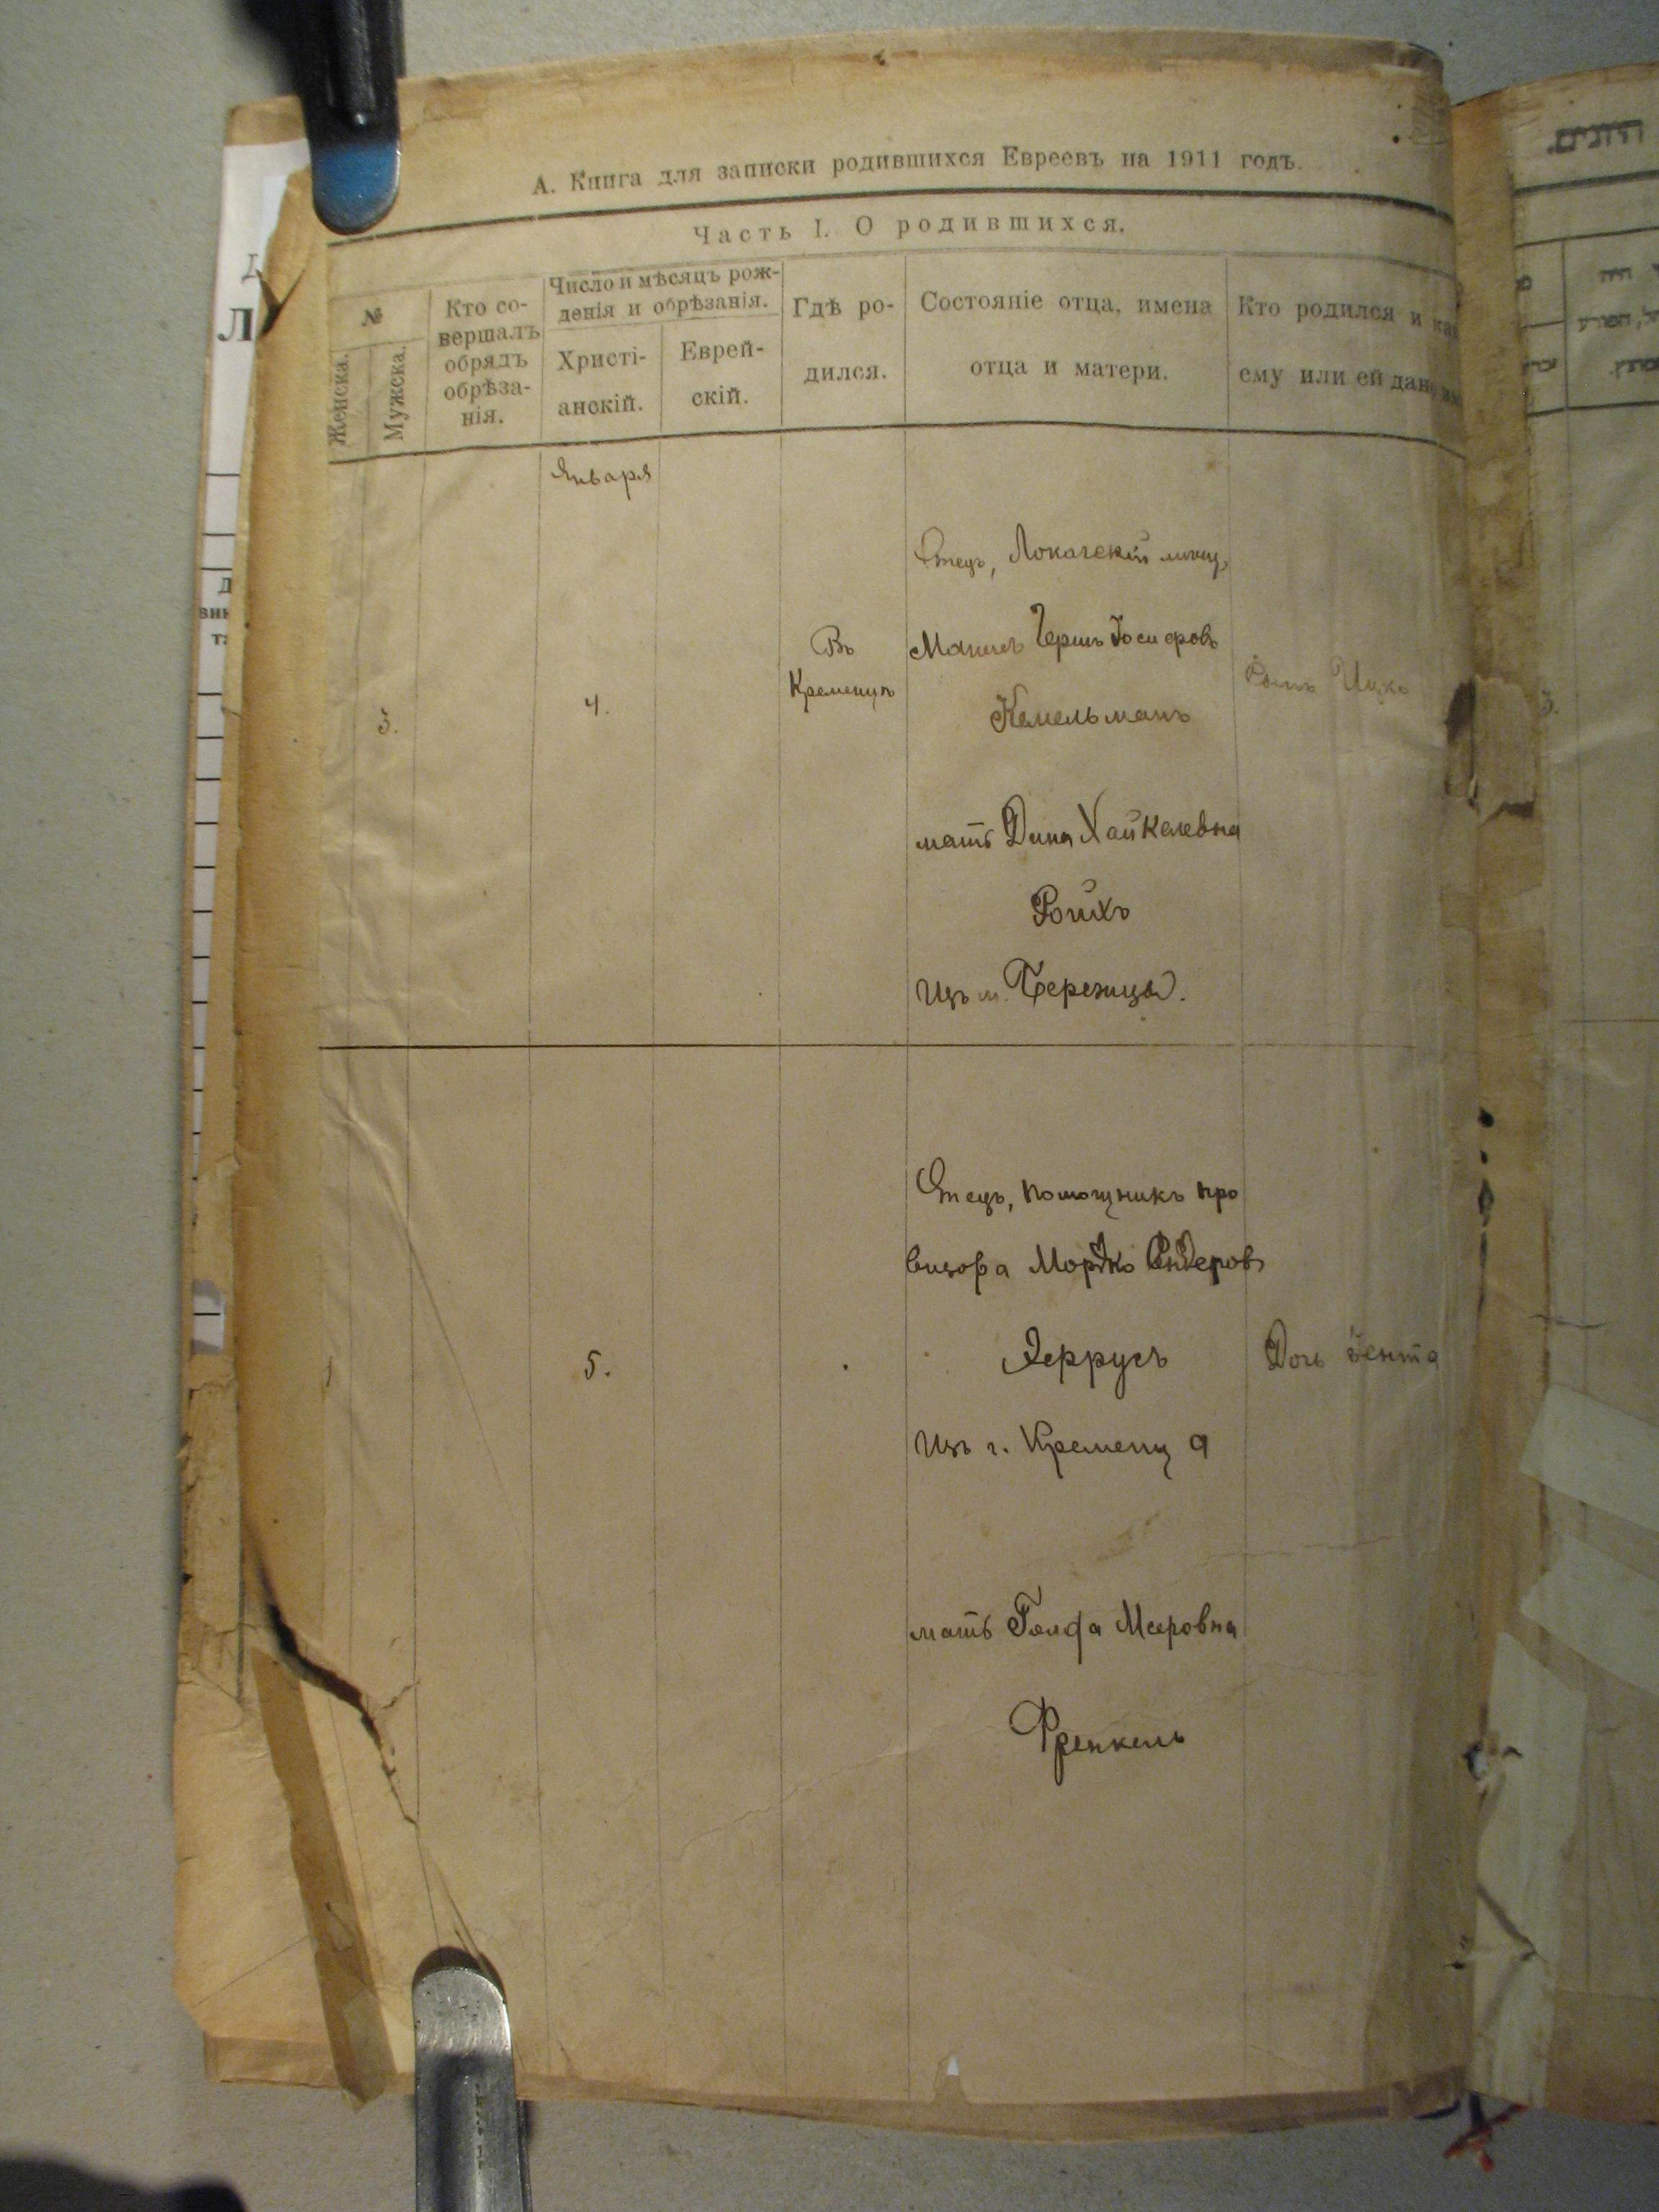 А. Книга для записки родившихся Евреевъ на 1911 годъ.
Часть I. О родившихся.
№
Женска.
Мужска.
Кто со-
вершалъ
обрядъ
обрѣза-
нія.
Число и мѣсяцъ рож-
денія и обрѣзанія.
Христі-
анскій.
Еврей-
скій.
Гдѣ ро-
дился.
Состояніе отца, имена
отца и матери.
Кто родился и ка
ему или ей дано
Января
3.
4.
Въ
Кременцѣ
Отецъ, Локачскій мѣщ.
Герш Іосифовъ
Кемельманъ
мать Дина Хайкелевна
Ройхъ
Изъ м. Бережцы.
Сынъ Ицко
1
5.
Отецъ, помощникъ про
визора Мордко Сендеров
Феррусъ
Изъ г. Кременца
мать Голда Мееровна
Френкель
Дочь Іента